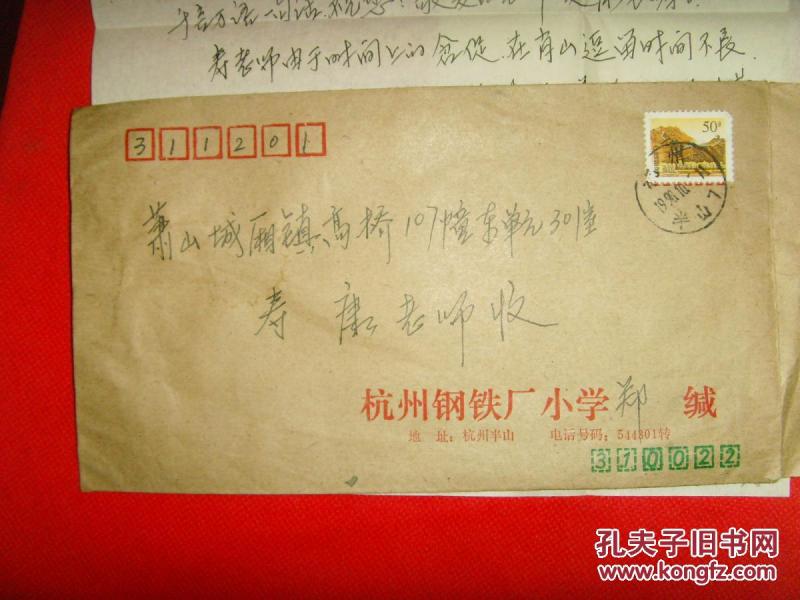 千言万语一句话 祝您
寿老师由于时间上的仓促,在肖山逗留时间不长.
311201
50分
州
萧山城厢镇高桥107幢东单元301室
寿康老师收
杭州钢铁厂小学郑 缄
地 址：杭州半山 电话号码：544301转
310022
孔夫子旧书网
www.kongfz.com